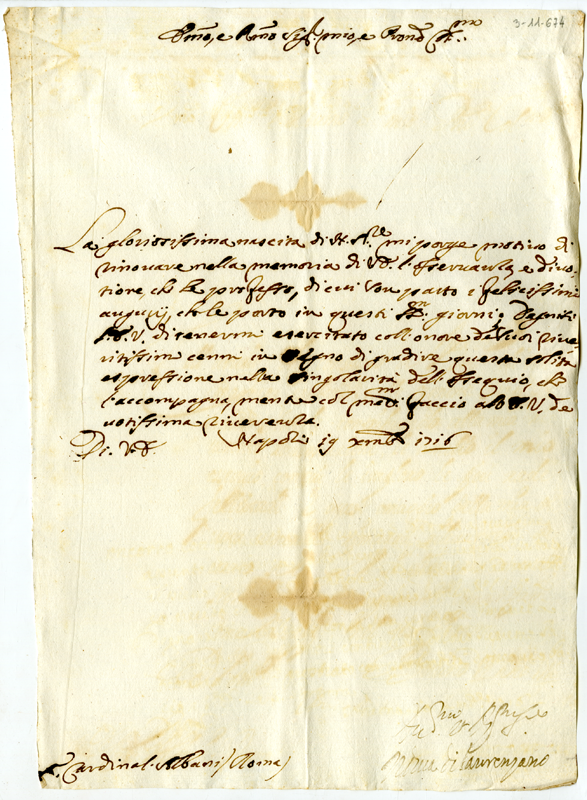 9-11-674
Emo, e Rmo Sig. mio, e Pron
La gloriosissima nascita di N. Sre mi porge motivo di
rinovare nella memoria di V.E. l'osservanza, e divo
tione, che le professo, di cui son parto i felicissimi
augurij, che le porto in questi giorni; Degnisi
di tenermi esercitato coll'onore de suoi rive
ritissimi cenni in segno di gradire questa solita
espressione nella singolarità dell'ossequio, che
l'accompagna, mentre col faccio a V. de
votissima riverenza.
Di V.E. Napoli 19 Xmbre 1716
Cardinal Albani (Roma)
di Laurenzano